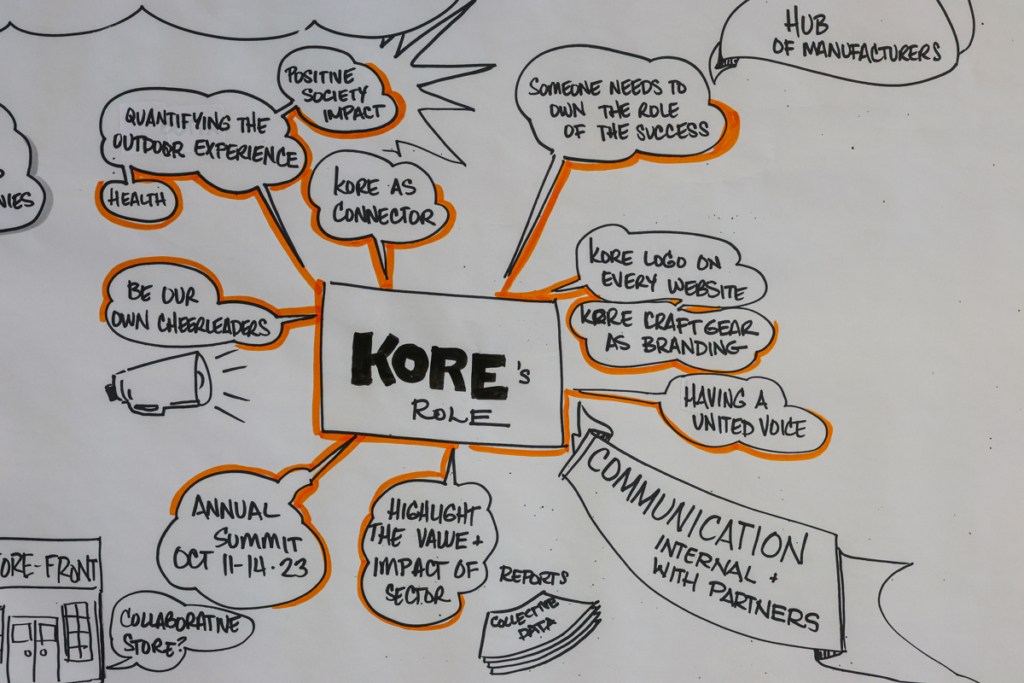 HUB
OF MANUFACTURERS
POSITIVE
SOCIETY
IMPACT
QUANTIFYING THE
OUTDOOR EXPERIENCE
HEALTH
KORE AS
CONNECTOR
SOMEONE NEEDS TO
OWN THE ROLE
OF THE SUCCESS
KORE LOGO ON
EVERY WEBSITE
KORE CRAFT GEAR
AS BRANDING
BE OUR
OWN CHEERLEADERS
KORE's
ROLE
HAVING A
UNITED VOICE
ANNUAL
SUMMIT
OCT 11-14·23
HIGHLIGHT
THE VALUE +
IMPACT OF
SECTOR
REPORTS
COLLECTIVE
DATA
COMMUNICATION
INTERNAL +
WITH PARTNERS
ORE-FRONT
COLLABORATIVE
STORE?